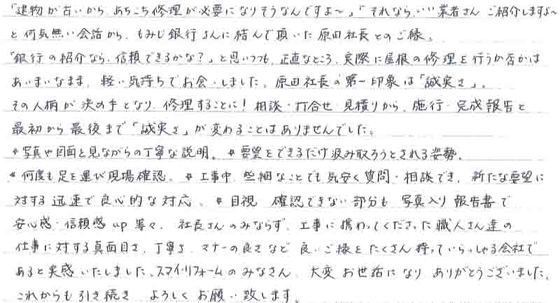 「建物が古いから、あちこち修理が必要になりそうなんですよ〜」「それなら、いい業者さんご紹介しますよ〜」
と何気無い会話から、もみじ銀行さんに結んで頂いた原田社長とのご縁。
「銀行の紹介なら、信頼できるかな?」と思いつつも、正直なところ、実際に屋根の修理を行うか否かは
あいまいなまま、軽い気持ちでお会いしました。原田社長の第一印象は「誠実さ」。
その人柄が決め手となり、修理することに! 相談・打合せ、見積りから、施行・完成報告と
最初から最後まで「誠実さ」が変わることはありませんでした。
*写真や図面を見ながらの丁寧な説明。*要望をできるだけ汲み取ろうとされる姿勢。
*何度も足を運び現場確認。*工事中、些細なことでも気安く質問・相談でき、新たな要望に
対する迅速で良心的な対応。*目視、確認できない部分も、写真入り報告書で
安心感・信頼感up 等々。社長さんのみならず、工事に携わってくださった職人さん達の
仕事に対する真面目さ、丁寧さ、マナーの良さなど良いご縁をたくさん持っていらっしゃる会社で
あると実感いたしました。スマイリフォームのみなさん、大変お世話になりありがとうございました。
これからも引き続き よろしくお願い致します。